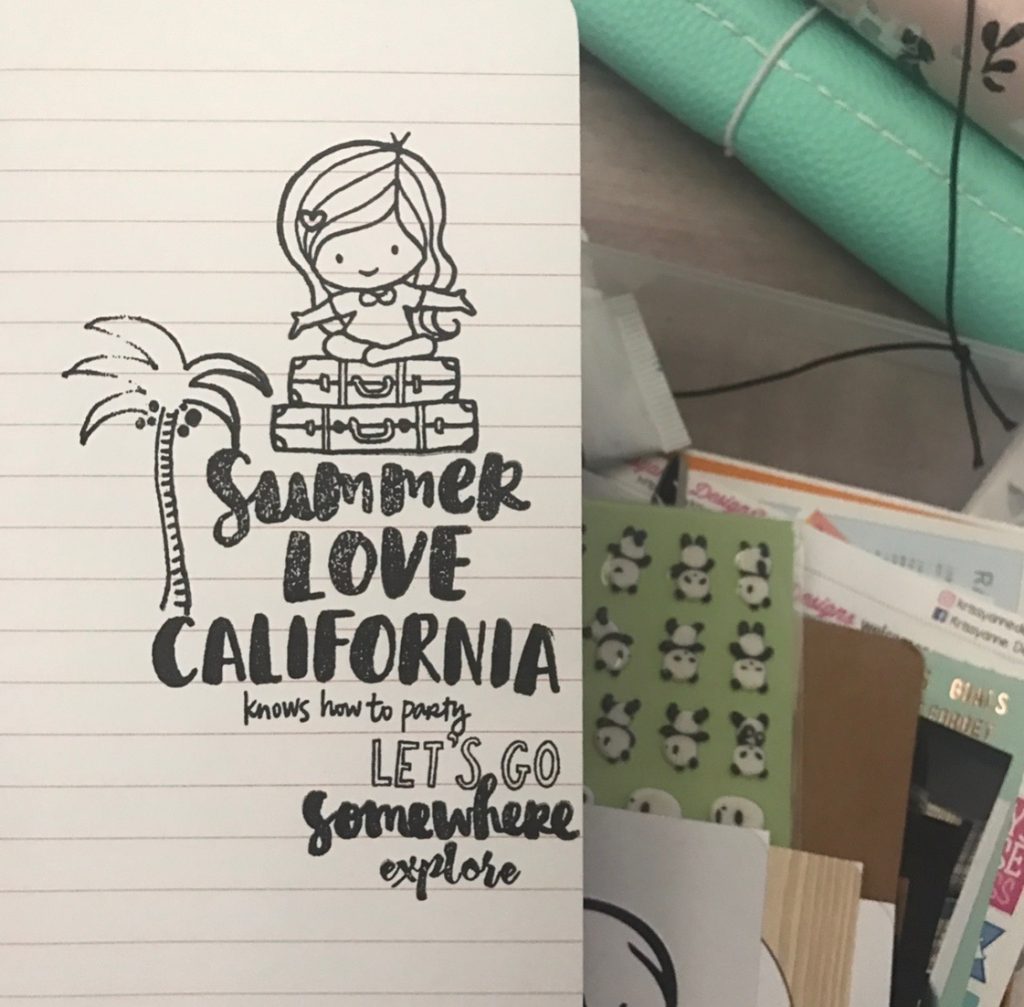 Summer
LOVE
CALIFORNIA
knows how to party
LET'S GO
somewhere
explore
Designs
Designs
Krissyanne
GOALS